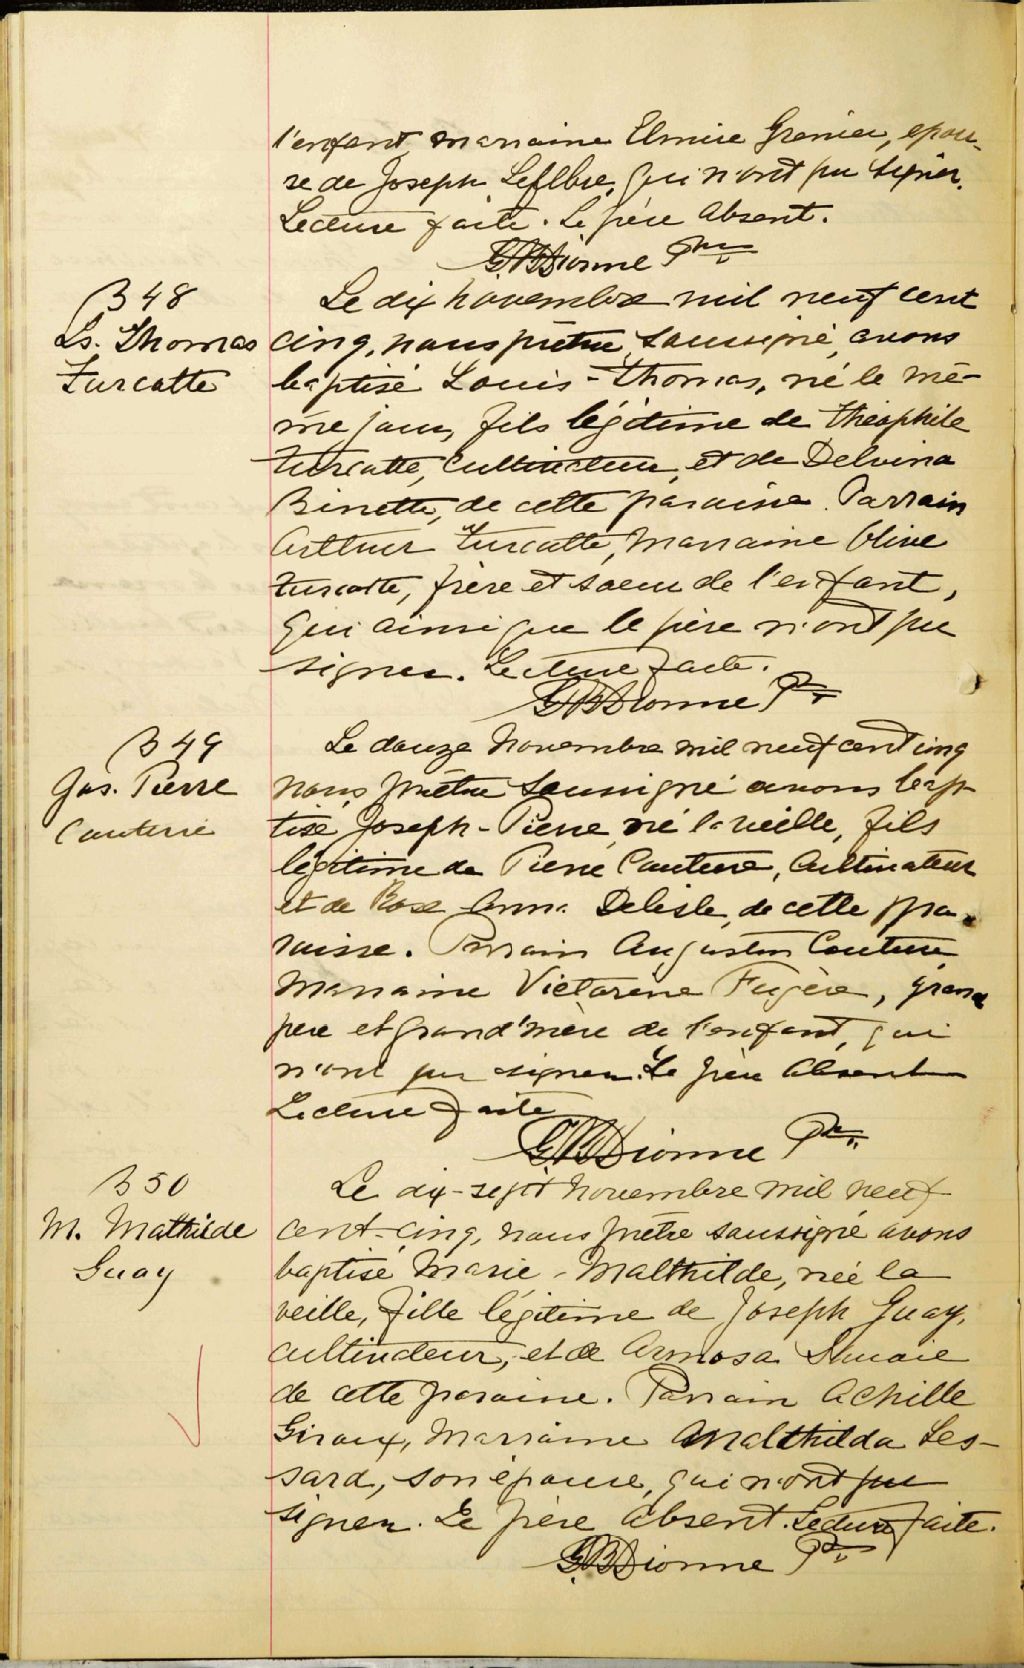 l'enfant, marraine Elmire Grenier, epou-
se de Joseph Lefebre, qui n'ont pu signer.
Lecture faite. Le père absent.
GBDionne Ptre
B 48
Ls. Thomas
Turcotte
Le dix novembre mil neuf cent
cinq, nous prêtre soussigné, avons
baptisé Louis-Thomas, né le mê-
me jour, fils légitime de Théophile
Turcotte, cultivateur, et de Delvina
Binette, de cette paroisse. Parrain
Arthur Turcotte, marraine Olive
Turcotte, frère et soeur de l'enfant,
qui ainsi que le père n'ont pu
signer. Lecture faite.
GBDionne Ptre
B 49
Jos. Pierre
Couture
Le douze novembre mil neuf cent cinq
nous prêtre soussigné avons bap-
tisé Joseph-Pierre, né la veille, fils
légitime de Pierre Couture, cultivateur
et de Rose Anna Delisle, de cette pa-
roisse. Parrain Augustin Couture
marraine Victorine Fugère, grand
père et grand'mère de l'enfant, qui
n'ont pu signer. Le père absent
Lecture faite
GBDionne Ptre
B 50
M. Mathilde
Guay
Le dix-sept novembre mil neuf
cent-cinq, nous prêtre soussigné avons
baptisé Marie-Malthilde, née la
veille, fille légitime de Joseph Guay,
cultivateur, et de Armosa
de cette paroisse. Parrain Achille
Giroux, marraine Malthilda Les-
sard, son épouse, qui n'ont pu
signer. Le père absent. Lecture faite.
GBDionne Ptre